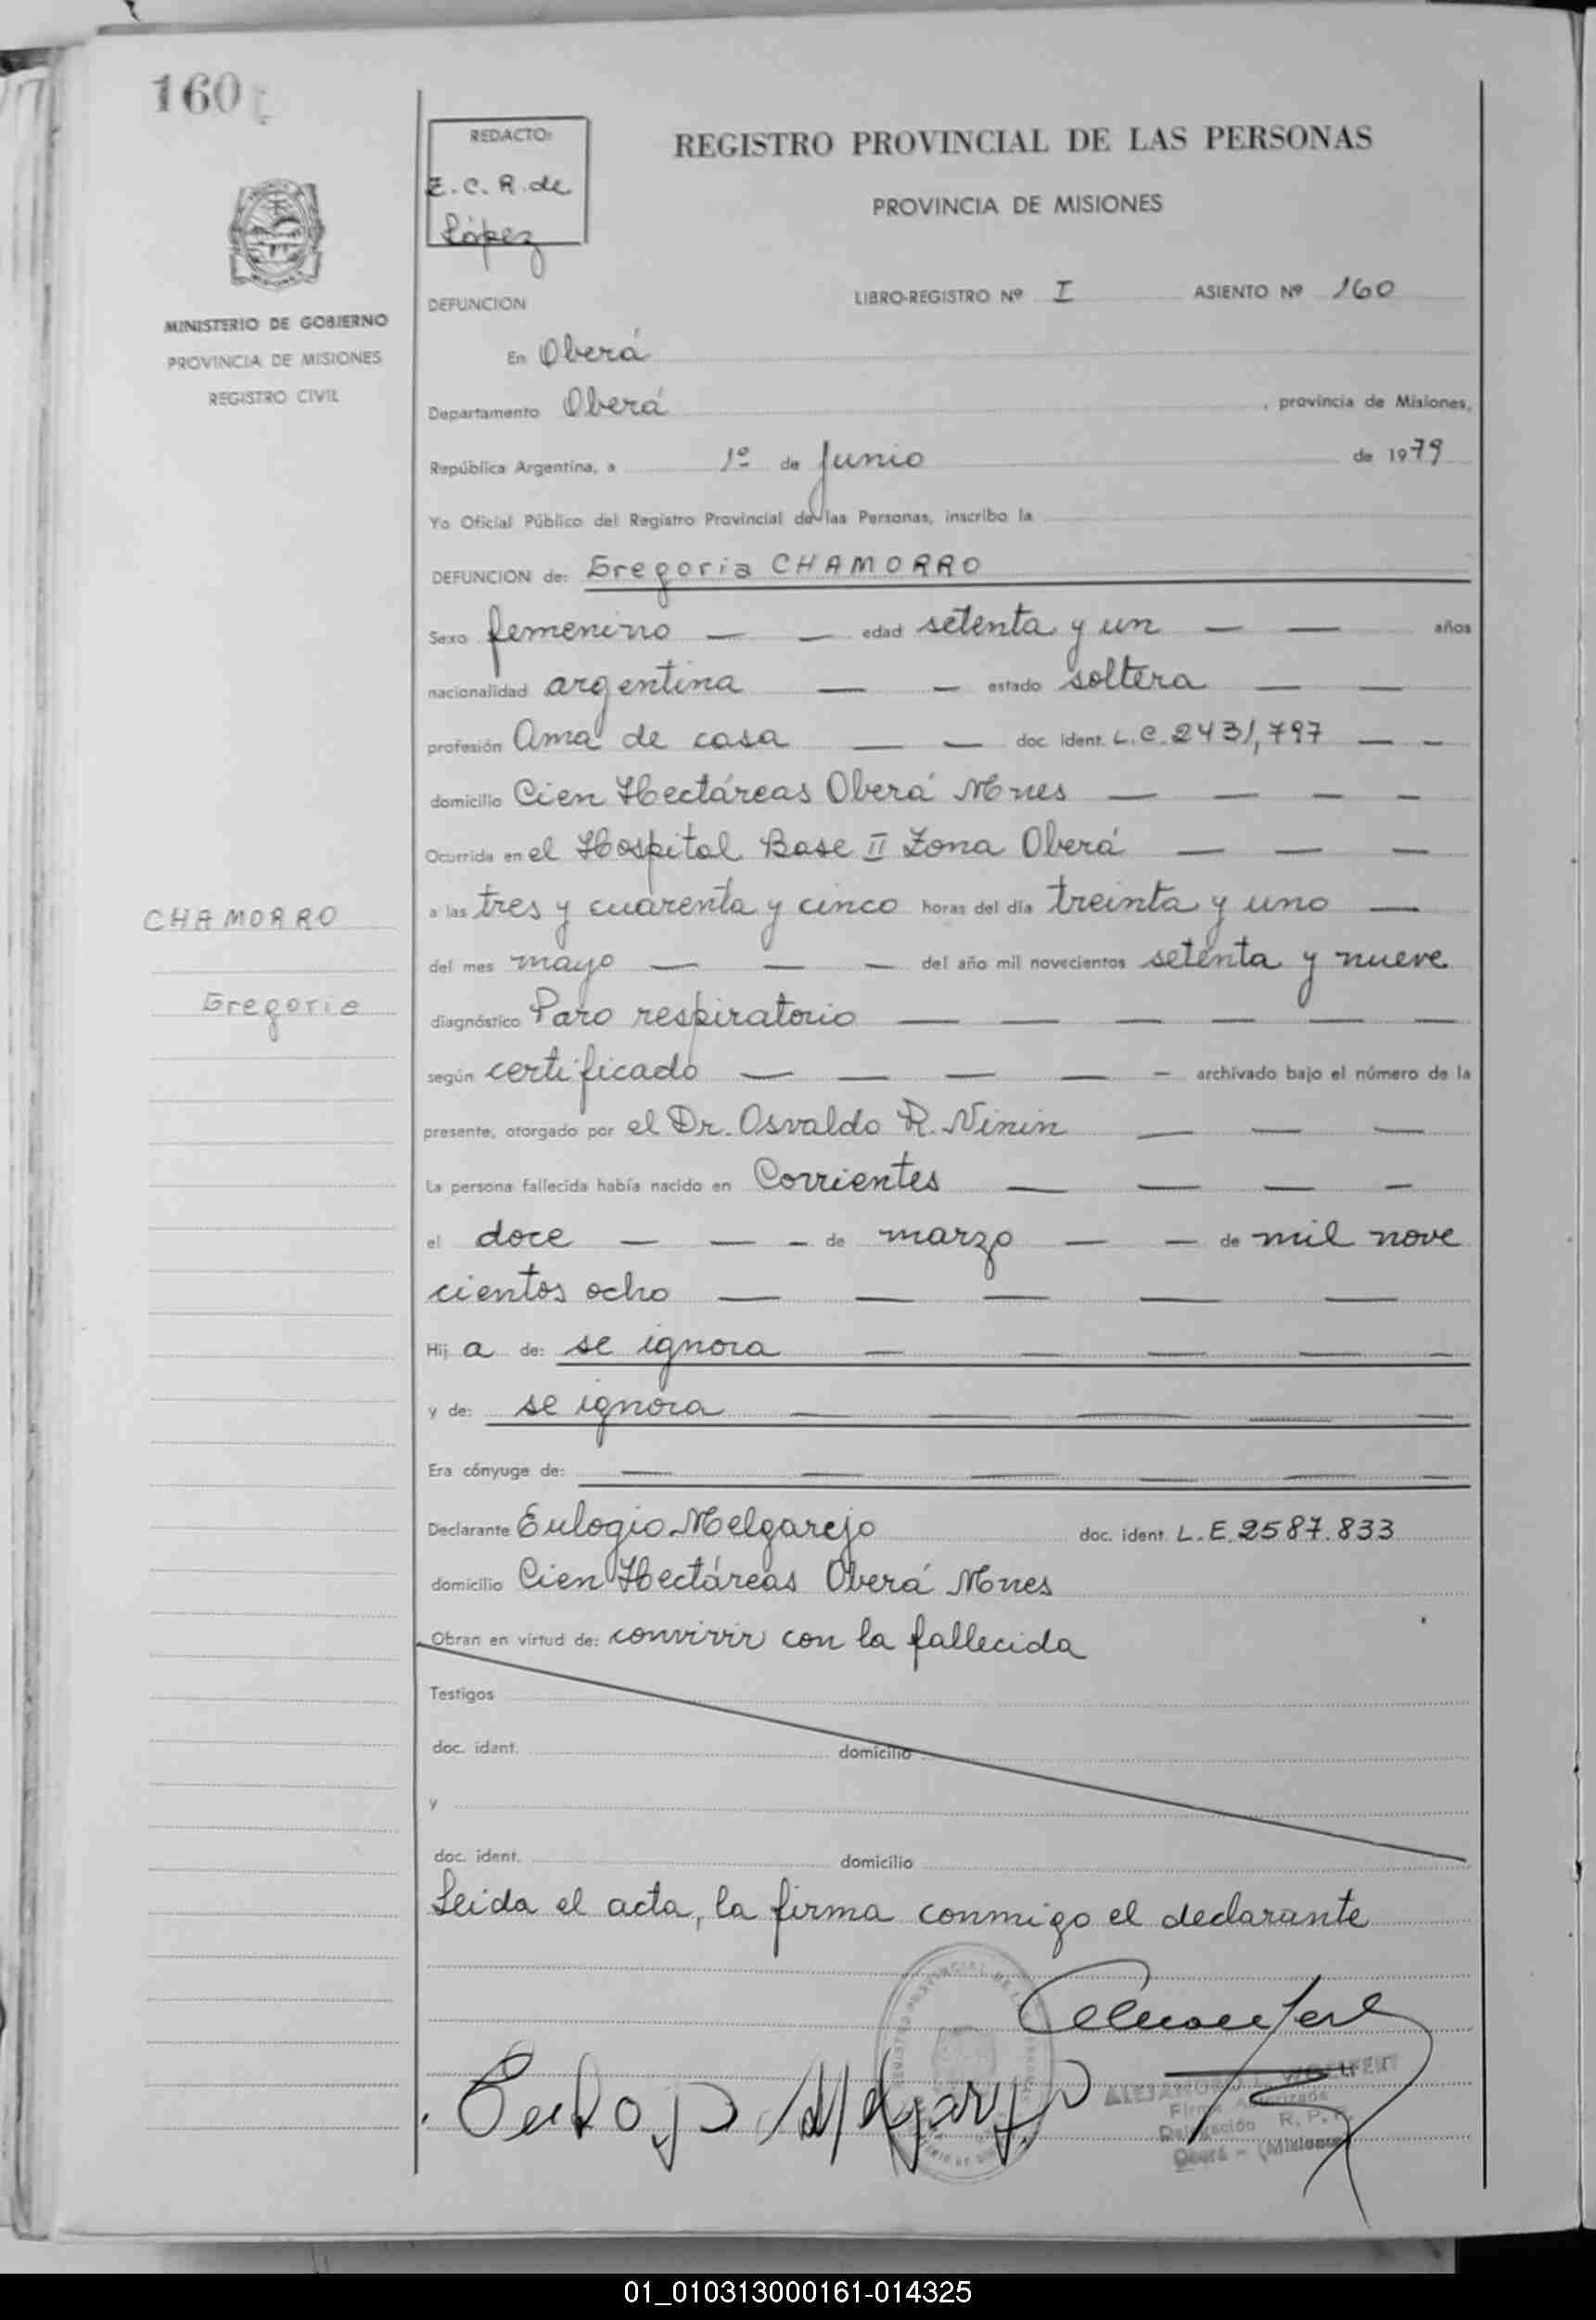 160
REDACTO:
E. C. R. de
López
REGISTRO PROVINCIAL DE LAS PERSONAS
PROVINCIA DE MISIONES
MINISTERIO DE GOBIERNO
PROVINCIA DE MISIONES
REGISTRO CIVIL
DEFUNCION LIBRO-REGISTRO Nº I ASIENTO Nº 160
En Oberá
Departamento Oberá, provincia de Misiones,
República Argentina, a 1º de Junio de 1979
Yo Oficial Público del Registro Provincial de las Personas, inscribo la
DEFUNCION de: Gregoria CHAMORRO
Sexo femenino — — edad setenta y un — — años
nacionalidad argentina — — estado soltera — —
profesión Ama de casa — — doc. ident. L.C. 2431,797 — —
domicilio Cien Hectáreas Oberá Mnes — — — —
Ocurrida en el Hospital Base II Zona Oberá — — —
a las tres y cuarenta y cinco horas del día treinta y uno —
del mes mayo — — — del año mil novecientos setenta y nueve
diagnóstico Paro respiratorio — — — — — —
según certificado — — — — — archivado bajo el número de la
presente, otorgado por el Dr. Osvaldo R. Ninin — — —
La persona fallecida había nacido en Corrientes — — — —
el doce — — — de marzo — — de mil nove
cientos ocho — — — — —
Hij a de: se ignora — — — — —
y de: se ignora — — — — —
Era cónyuge de: — — — — — —
Declarante Eulogio Melgarejo doc. ident. L.E. 2587.833
domicilio Cien Hectáreas Oberá Mnes
Obran en virtud de: convivir con la fallecida
Testigos
doc. ident. domicilio
y
doc. ident. domicilio
Leida el acta, la firma conmigo el declarante
CHAMORRO
Gregoria
Eulogio Melgarejo
Firma Autorizada
Delegación R. P. P.
Oberá - (Misiones)
01_010313000161-014325